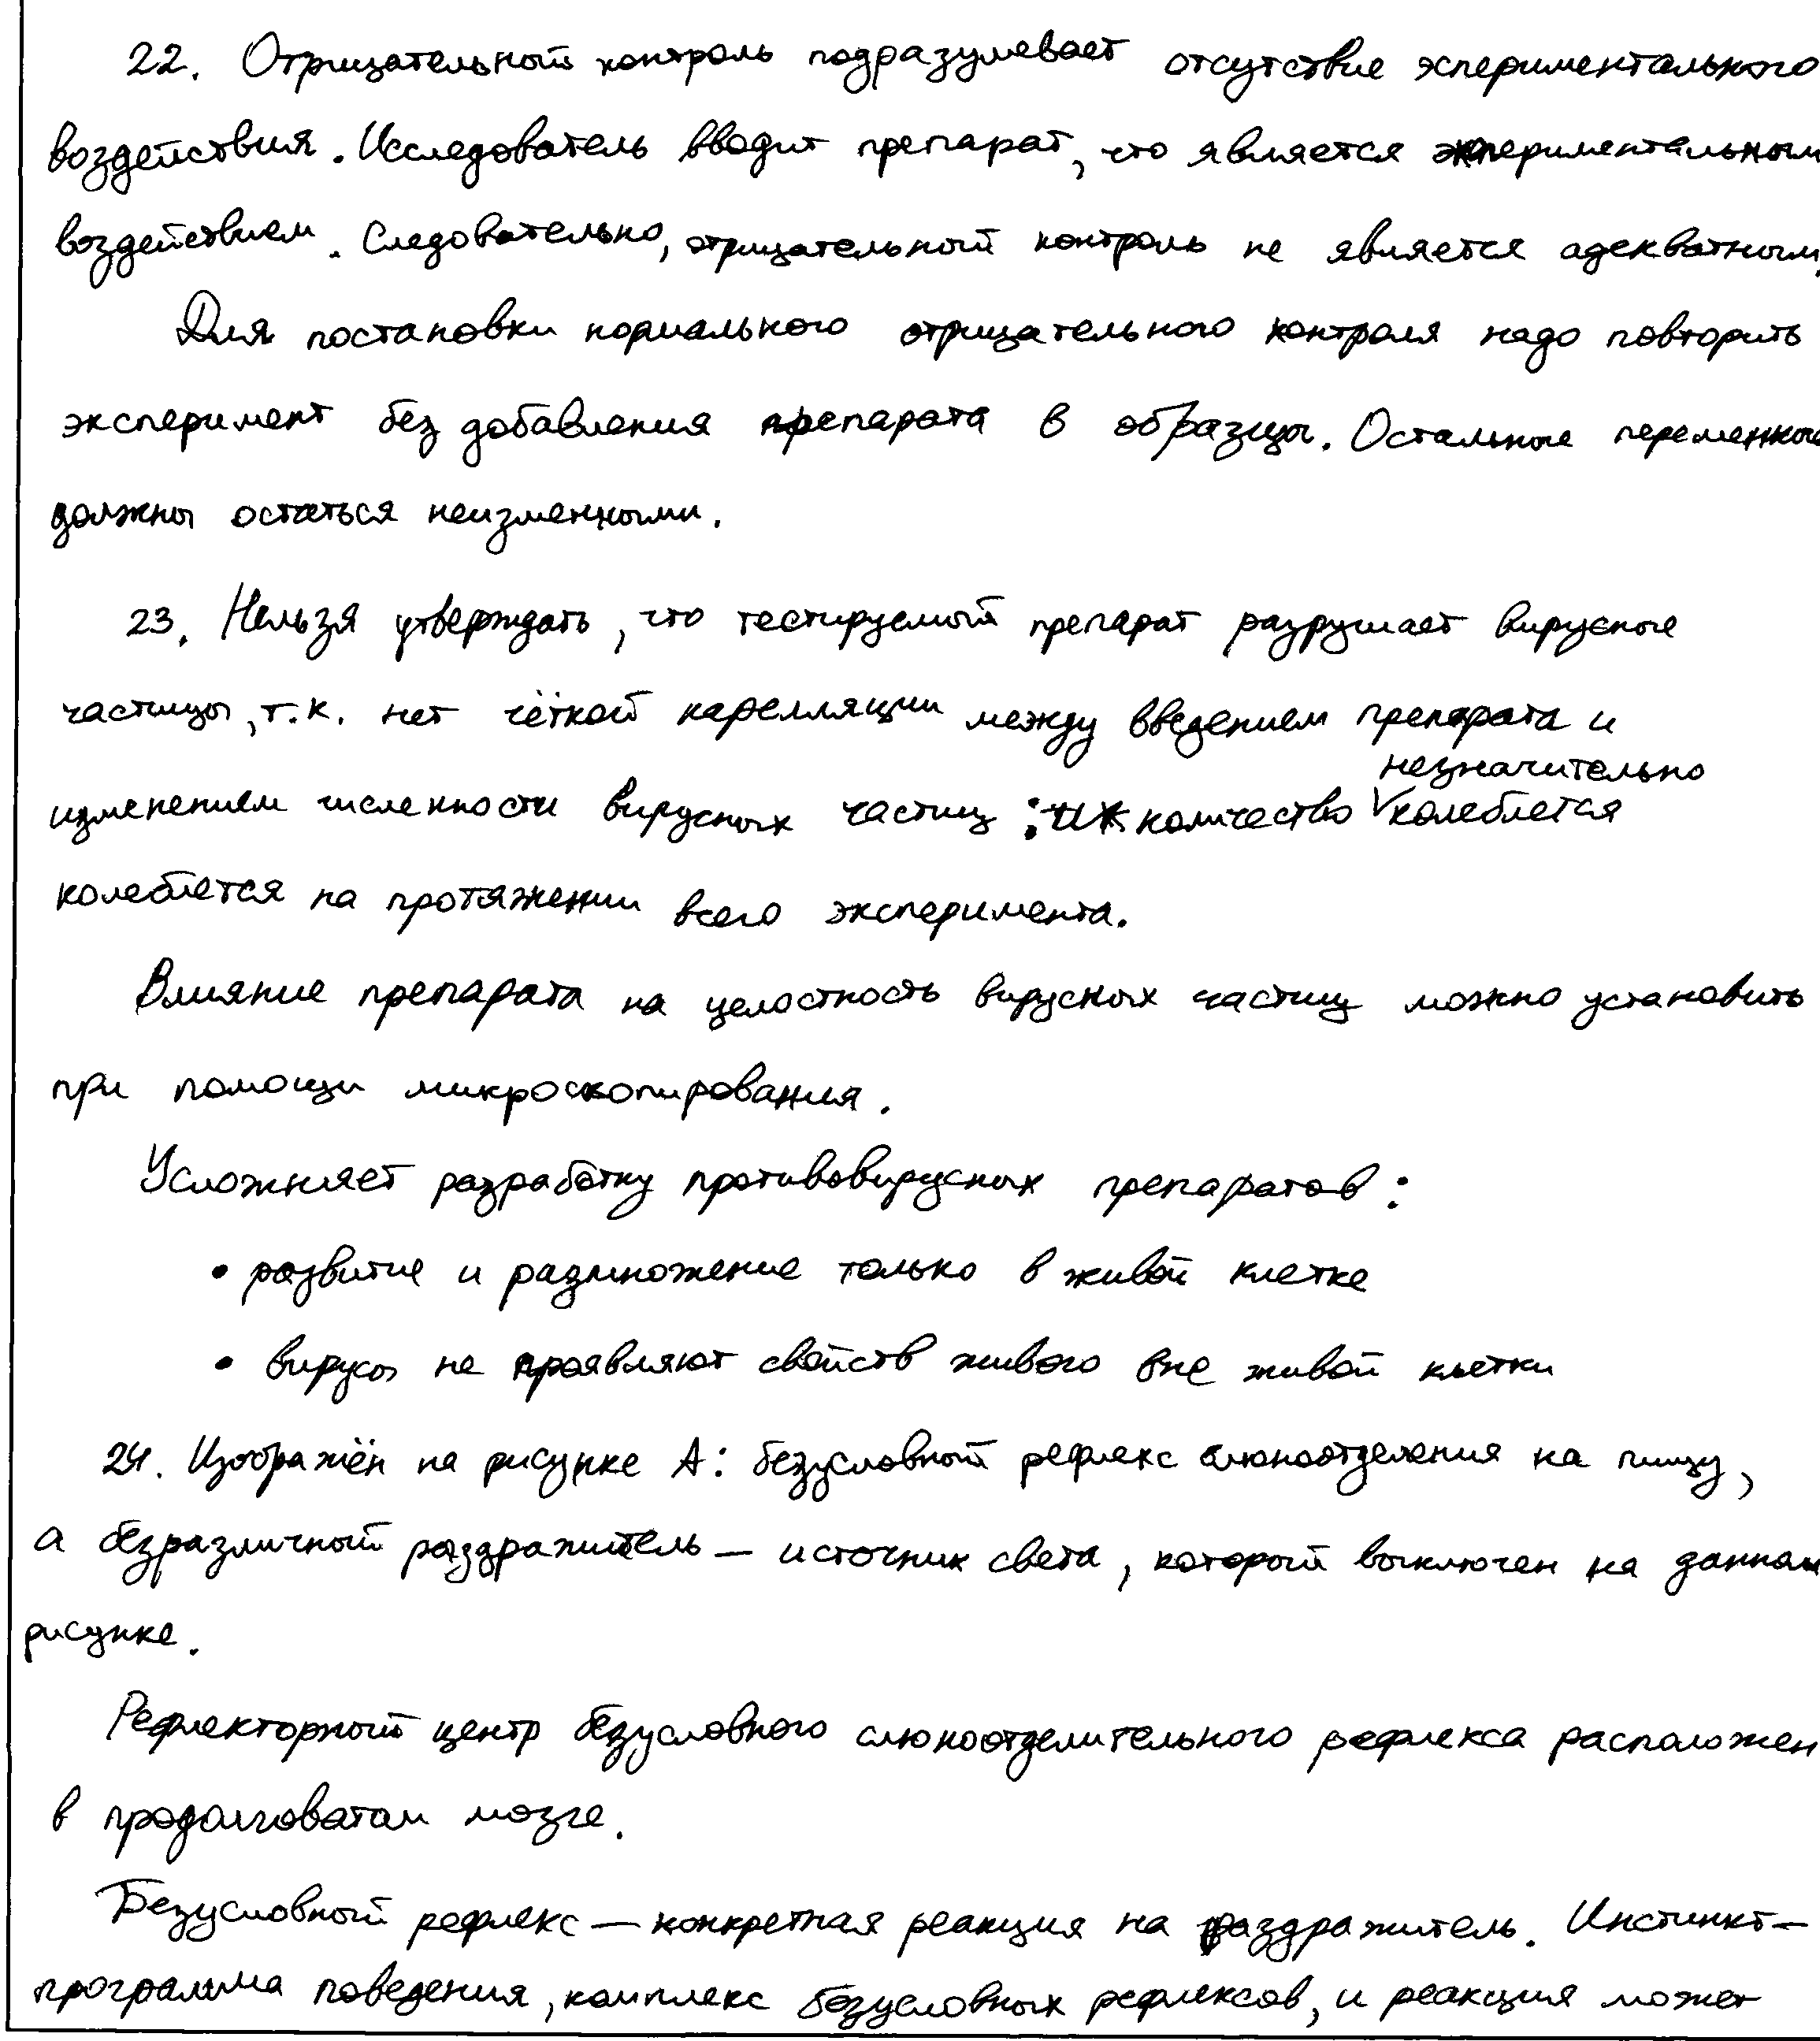 22. Отрицательный контроль подразумевает отсутствие эспериментального
воздействия. Исследователь вводит препарат, что является экпериментальным
воздействием. Следовательно, отрицательный контроль не является адекватным.
Для постановки нормального отрицательного контроля надо повторить
эксперимент без добавления препарата в образцы. Остальные переменные
должны остаться неизменными.
23. Нельзя утверждать, что тестируемый препарат разрушает вирусные
частицы, т.к. нет чёткой карелляции между введением препарата и
незначительно
изменением численности вирусных частиц: их количество колеблется
колеблется на протяжении всего эксперимента.
Влияние препарата на целостность вирусных частиц можно установить
при помощи микроскопирования.
Усложняет разработку противовирусных препаратов:
• развитие и размножение только в живой клетке
• вирусы не проявляют свойств живого вне живой клетки
24. Изображён на рисунке А: безусловный рефлекс слюноотделения на пищу,
а безразличный раздражитель — источник света, который выключен на данном
рисунке.
Рефлекторный центр безусловного слюноотделительного рефлекса расположен
в продолговатом мозге.
Безусловный рефлекс — конкретная реакция на раздражитель. Инстинкт —
программа поведения, комплекс безусловных рефлексов, и реакция может